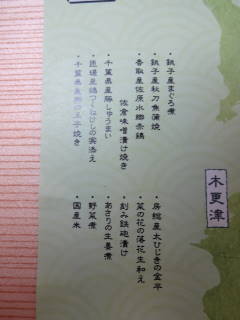 ・銚子産まぐろ煮
・銚子産秋刀魚蒲焼
・香取産佐原水郷赤鶏
佐倉味噌漬け焼き
・千葉県産豚しゅうまい
・地場産鶏つくねひしの実添え
・千葉県産卵の玉子焼き
木更津
・房総産太ひじきの金平
・菜の花の落花生和え
・刻み鉄砲漬け
・あさりの生姜煮
・野菜煮
・国産米